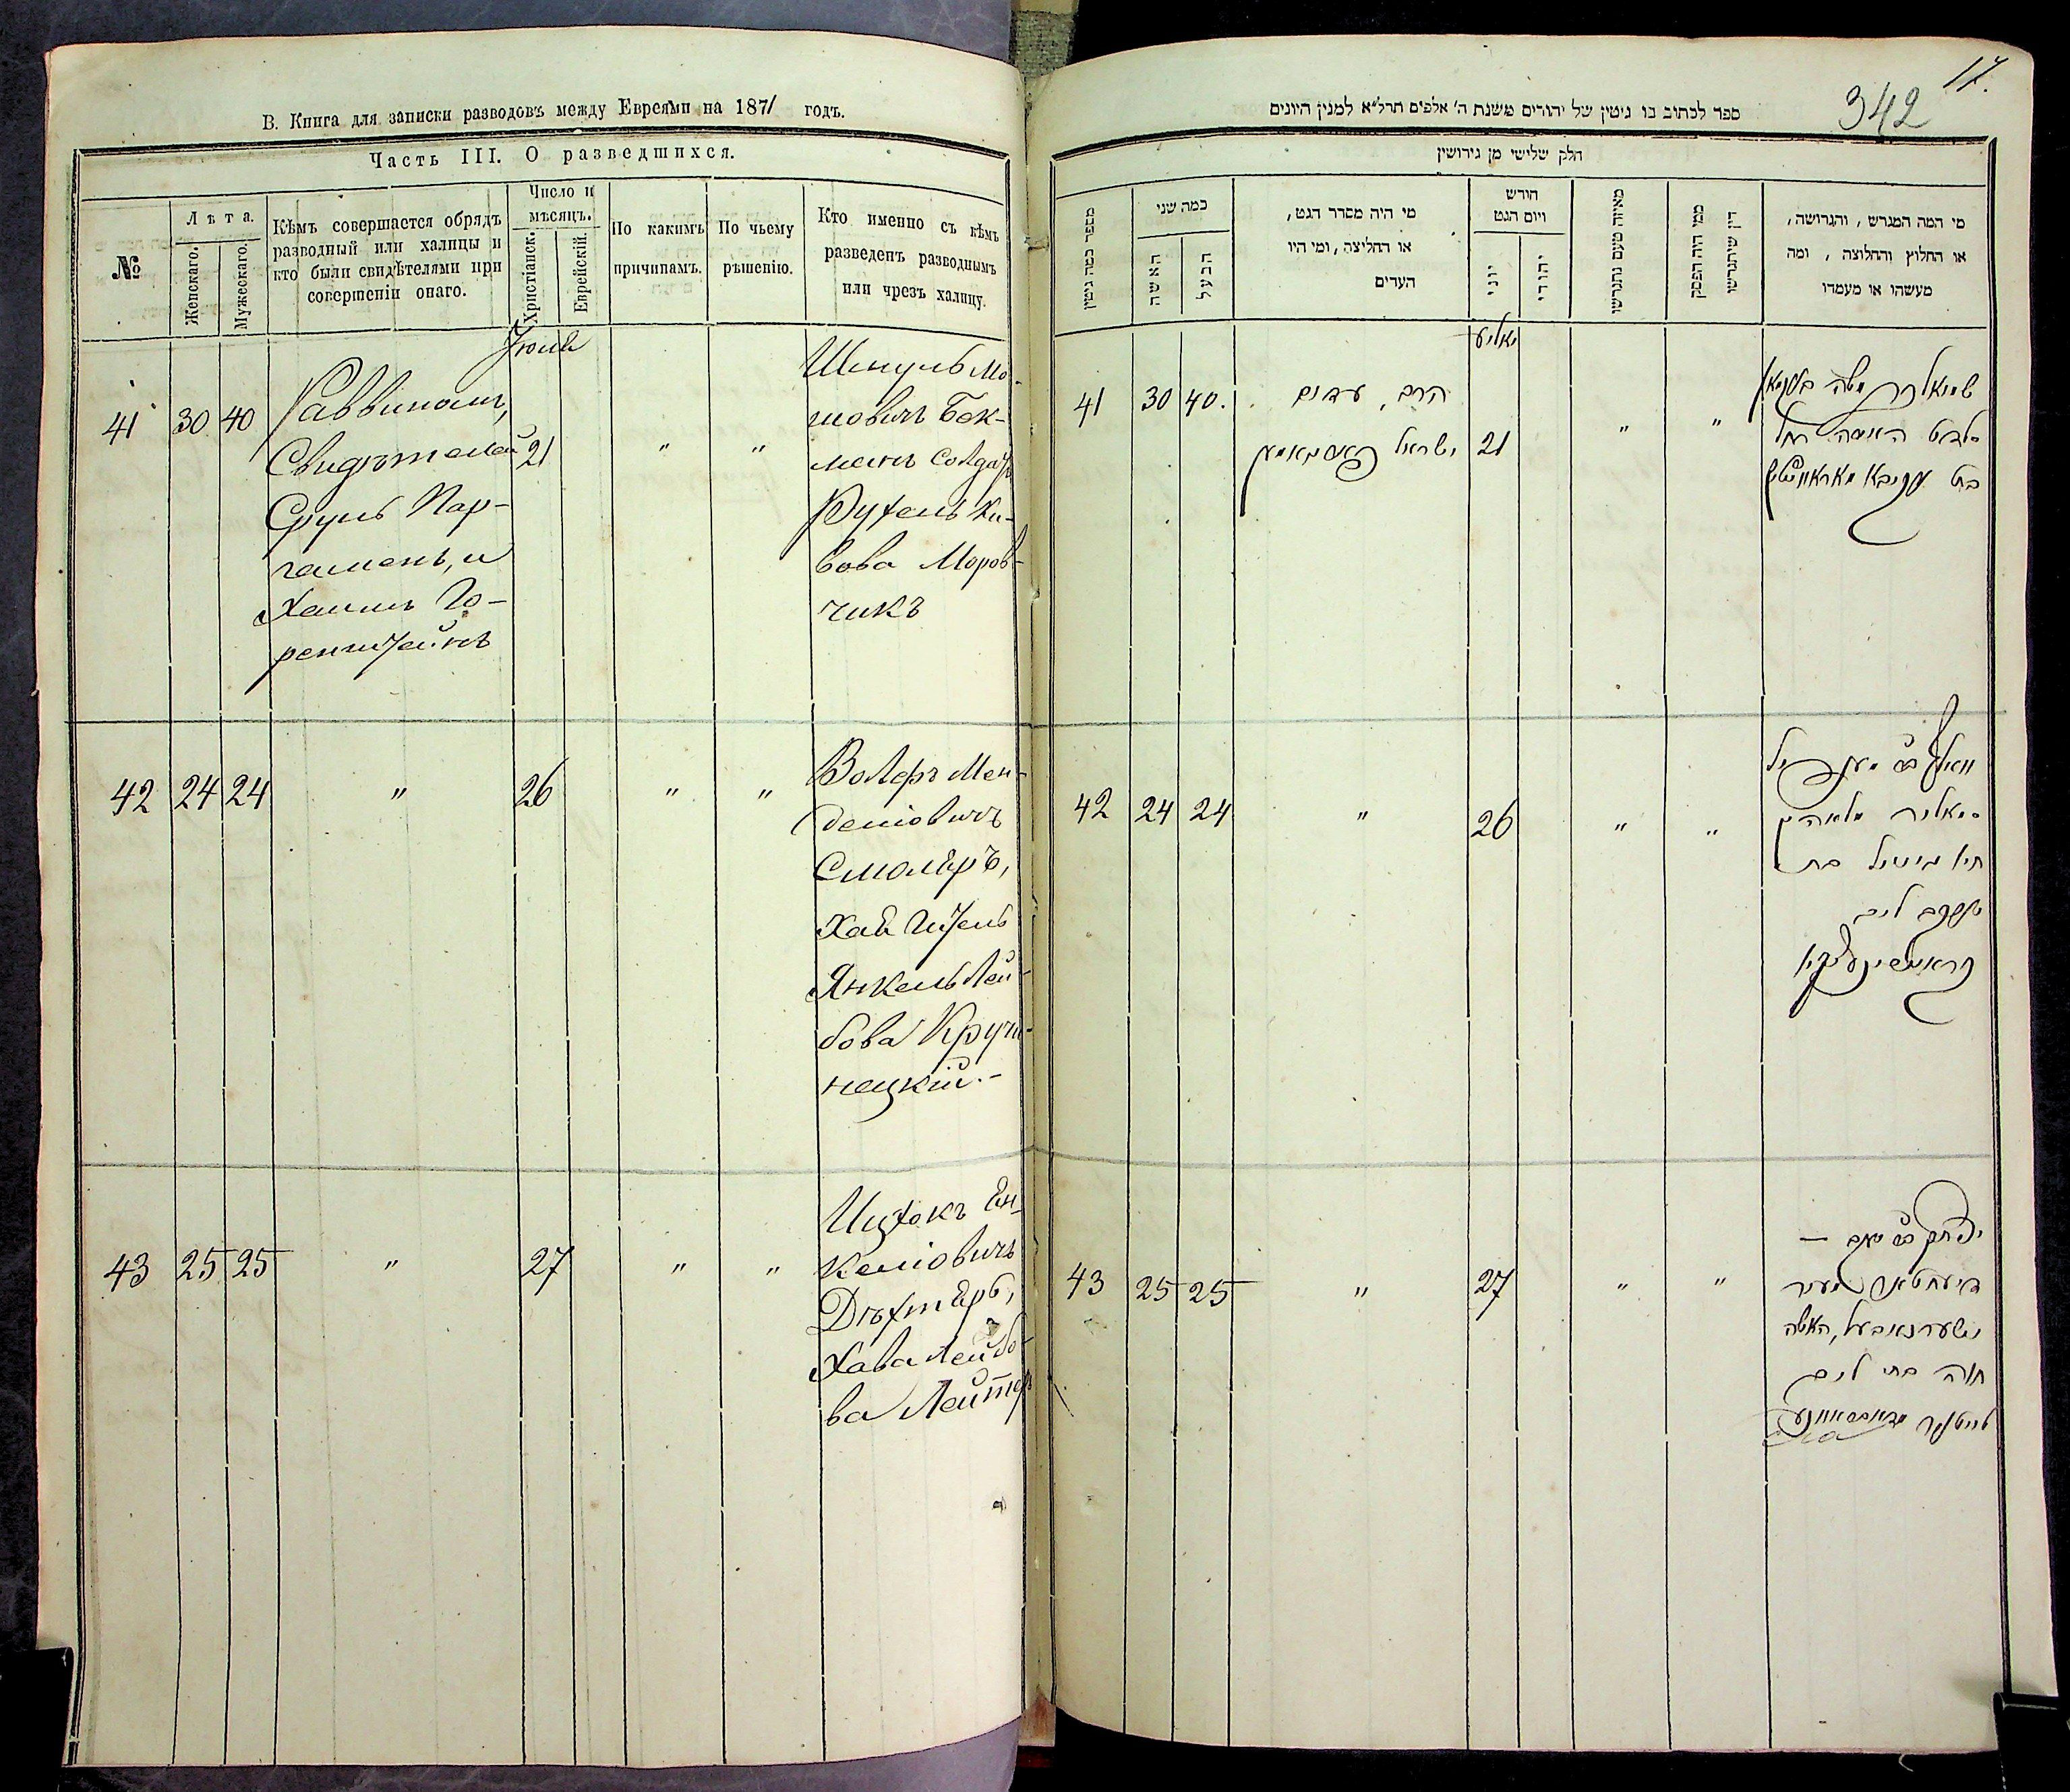 В. Книга для записки разводовъ между Евреями на 1871 годъ.
Часть III. О разведшихся.
№
Лѣта.
Женскаго.
Мужескаго.
Кѣмъ совершается обрядъ
разводный или халицы и
кто были свидѣтелями при
совершеніи онаго.
Число и
мѣсяцъ.
Христіанск.
Еврейскій.
По какимъ
причинамъ.
По чьему
рѣшенію.
Кто именно съ кѣмъ
разведенъ разводнымъ
или чрезъ халицу.
Июля
41 30 40
Раввиномъ,
Свидѣтелей
Сруль Пар-
гаменъ, и
Хаимъ Го-
ренштейнъ
21 " "
Шмуль Мо-
шовичъ Бок-
манъ Солдатъ
Рухель Ки-
вова Моров-
чикъ
42 24 24 " 26 " "
Волфъ Мен-
деліовичъ
Смолеръ,
Хая Гитель
Янкель Лей-
бова Кручи-
нецкій.-
43 25 25 " 27 " "
Ицхокъ Ен-
келіовичъ
Дѣхтеръ,
Хава Лейбо-
ва Лейтер
17.
342
ספר לכתוב בו גיטין של יהודים משנת ה' אלפים תרל"א למנין היונים
חלק שלישי מן גירושין
מספר כמה גיטין
כמה שני
האשה
הבעל
מי היה מסדר הגט,
או החליצה, ומי היו
העדים
חודש
ויום הגט
יוני
יהודי
מאיזה טעם נתגרשו
ממי היה הפסק
דין שיתגרשו
מי המה המגרש, והגרושה,
או החלוץ והחלוצה, ומה
מעשהו או מעמדו
יאליע
41 30 40.
הרב, עדים
ישראל
21 " "
משה
האשה רחל
בת עקיבא
42 24 24 " 26 " "
וואלף
חיא גיטיל בת
יעקב ליב
43 25 25 " 27 " "
יצחק
האשה
חוה בת ליב